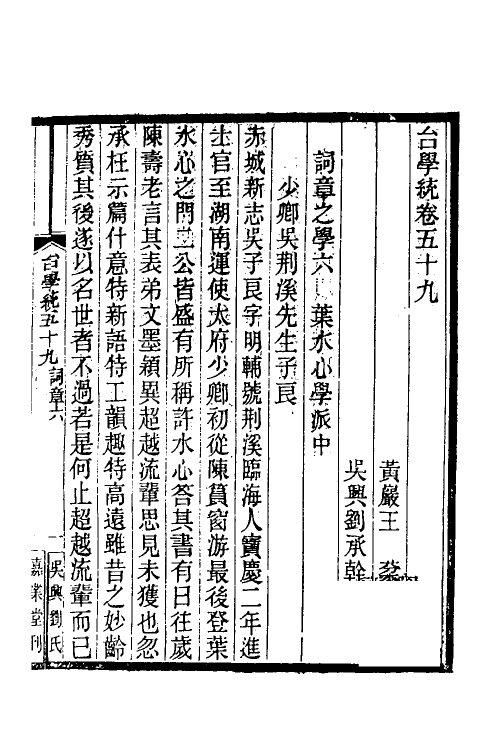 台學統卷五十九
黃巖王
吳興劉承幹
詞章之學六 葉水心學派中
少卿吳荆溪先生子良
赤城新志吳子良字明輔號荆溪臨海人寶慶二年進
士官至湖南運使太府少卿初從陳篔窗游最後登葉
水心之門二公皆盛有所稱許水心答其書有曰往歲
陳壽老言其表弟文墨穎異超越流輩思見未獲也忽
承枉示篇什意特新語特工韻趣特高遠雖昔之妙齡
秀質其後遂以名世者不過若是何止超越流輩而已
台學統五十九 詞章六
一
吳興劉氏
嘉業堂刊